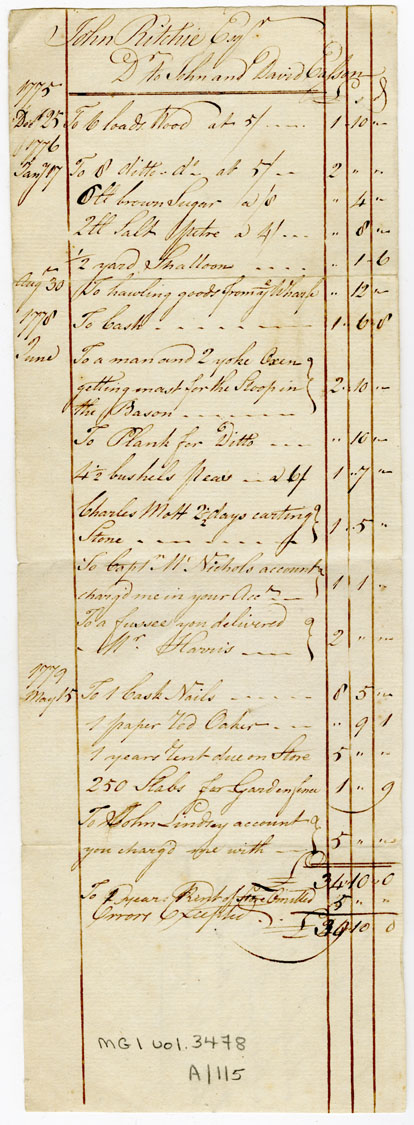 John Ritchie Esqr.
Dr. to John and David Casson
£ s d
1775
Decr 25 To 6 loads Wood at 5/ 1 10 "
1776
Jany 17 To 8 ditto do at 5/ 2 " "
6 lb brown Sugar a /8 " 4 "
2 lb Salt Petre a 4/ " 8 "
1/2 yard Shalloon " 1 6
Augt 30 To hawling goods from ye Wharf " 12 "
1778 To Cash 1 6 8
June To a man and 2 yoke Oxen
getting mast for the Sloop in
the Bason 2 10 "
To Plank for Ditto " 10 "
4 1/2 bushels Peas a 6/ 1 7 "
Charles Mott 2 1/2 days carting
Stone 1 5 "
To Captn. Mc Nichols account
charg'd me in your Acct. 1 1 "
To a fusee you delivered
Mr. Harris 2 " "
1779
May 15 To 1 Cask Nails 8 5 "
1 paper Red Oaker " 9 1
1 years Rent due on Store 5 " "
250 Slabs for Garden fence 1 " 9
To John Lindsey account
you charg'd me with 5 " "
£ 34 10 0
To 1 years Rent of Store Omitted 5 " "
Errors Excepted £ 39 10 0
MG 1 vol. 3478
A/115